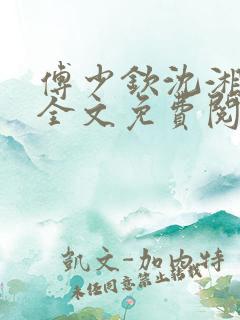 傅少欽沈湘
全文免費閱
凱文-加內特
未经同意禁止转载